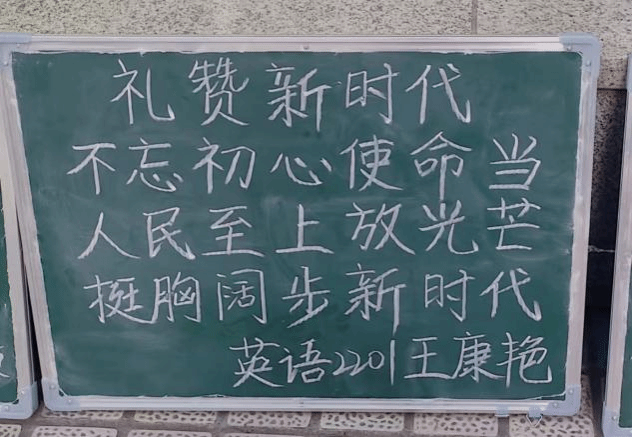 礼赞新时代
不忘初心使命当
人民至上放光芒
挺胸阔步新时代
英语2201王康艳